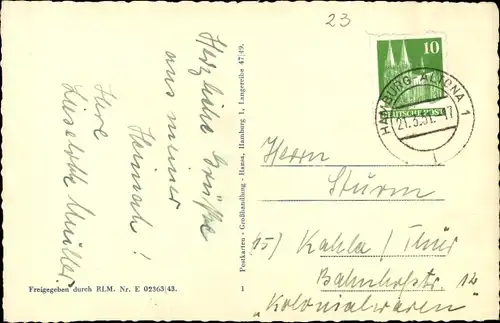 23
Herzliche Grüße
aus meiner
Heimat!
Eure
Liselotte Müller
Freigegeben durch RLM. Nr. E 02363/43.
Postkarten - Großhandlung - Hansa, Hamburg 1, Langereihe 47/49.
1
10
DEUTSCHE POST
HAMBURG-ALTONA 1
21.3.51. 17
Herrn
Sturm
15) Kahla / Thür
Bahnhofstr. 12
„Kolonialwaren"